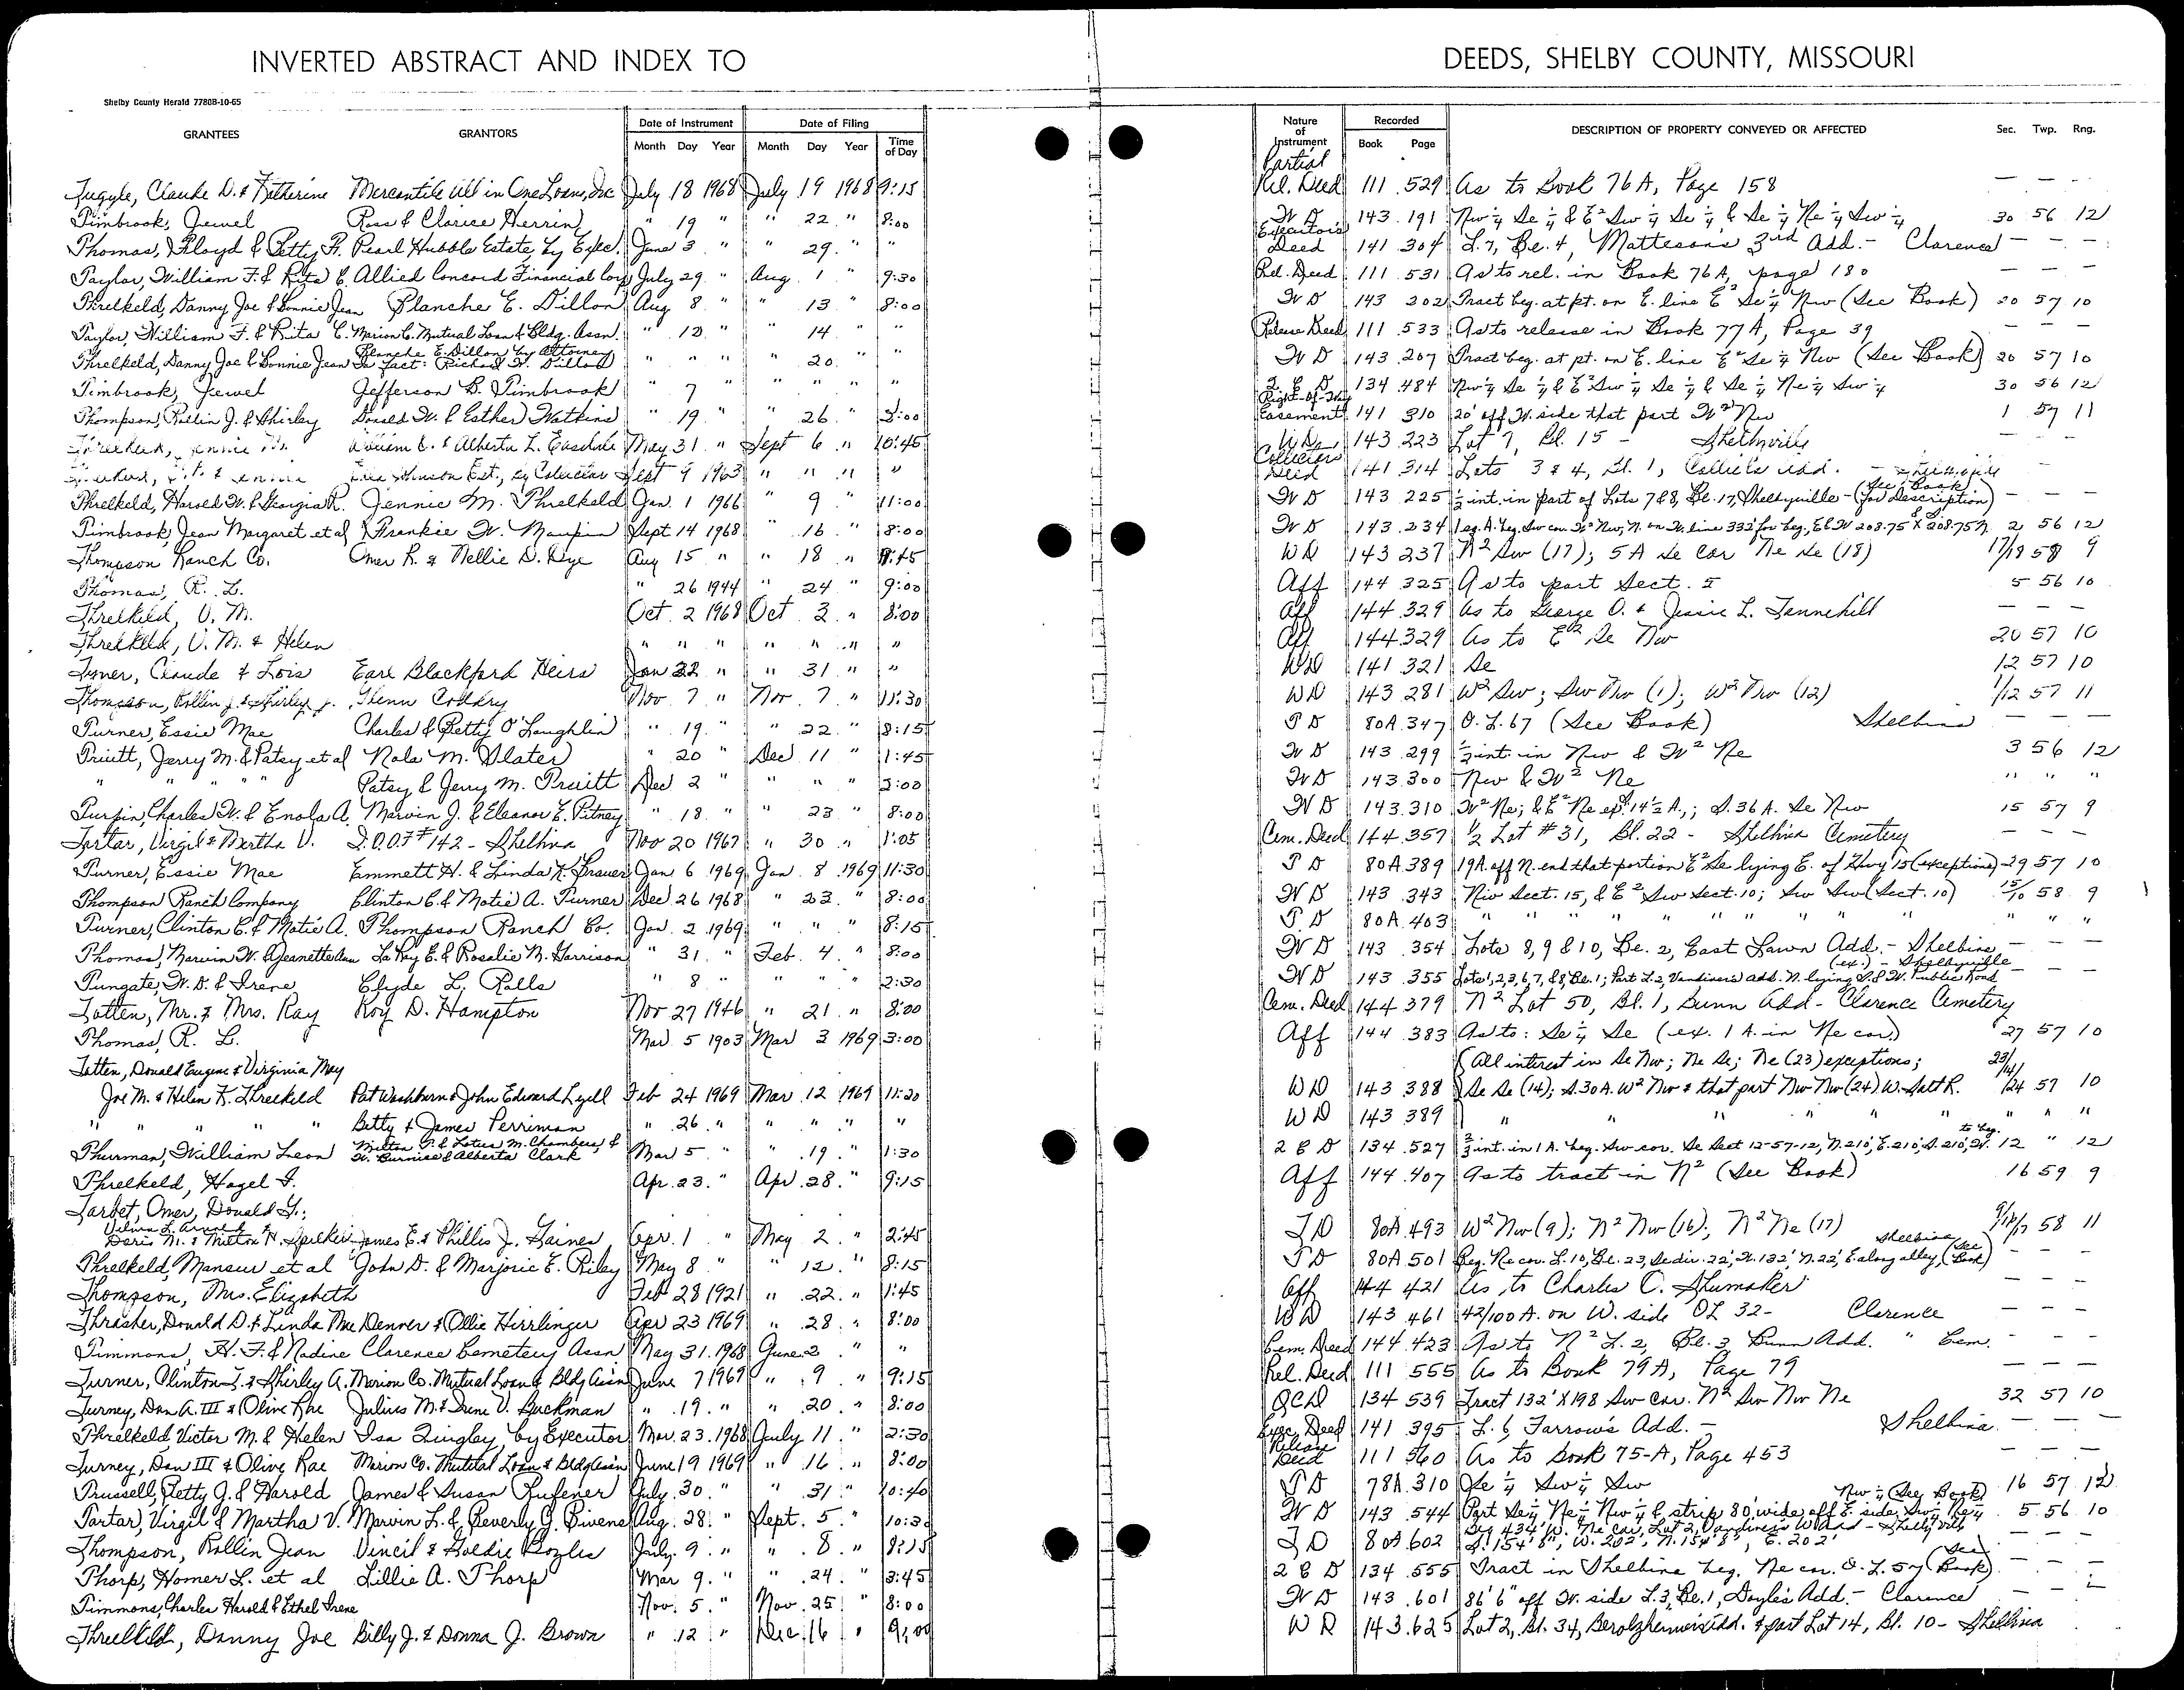 INVERTED ABSTRACT AND INDEX TO DEEDS, SHELBY COUNTY, MISSOURI
Shelby County Herald 7780B-10-65
GRANTEES GRANTORS Date of Instrument Date of Filing Nature of Instrument Recorded DESCRIPTION OF PROPERTY CONVEYED OR AFFECTED Sec. Twp. Rng.
Month Day Year Month Day Year Time of Day Book Page
Claude D. & Katherine Mercantile All in One Loans, Inc July 18 1968 July 19 1968 9:15 Partial Rel. Deed 111 529 As to Book 76A, Page 158 — — —
Timbrook, Jewel Ross & Clarice Herrin " 19 " " 22 " 8:00 W D 143 191 Nw ¼ Se ¼ & E² Sw ¼ Se ¼ & Se ¼ Ne ¼ Sw ¼ 30 56 12
Thomas, Floyd & Betty F. Pearl Hubble Estate, by Exec. June 3 " " 29 " " Executor's Deed 141 304 L. 7, Bl. 4, Matteson's 3rd Add. - Clarence — — —
Taylor, William F. & Rita C. Allied Concord Financial Corp July 29 " Aug 1 " 9:30 Rel. Deed 111 531 As to rel. in Book 76A, page 180 — — —
Threlkeld, Danny Joe & Bonnie Jean Blanche E. Dillon Aug 8 " " 13 " 8:00 W D 143 202 Tract beg. at pt. on E. line E² Se ¼ Nw (See Book) 20 57 10
Taylor, William F. & Rita C. Marion C. Mutual Loan & Bldg. Assn. " 12 " " 14 " " Release Deed 111 533 As to release in Book 77A, Page 39 — — —
Threlkeld, Danny Joe & Bonnie Jean Blanche E. Dillon by Attorney in fact: Richard W. Dillon " " " " 20 " " W D 143 207 Tract beg. at pt. on E. line E² Se ¼ Nw (See Book) 20 57 10
Timbrook, Jewel Jefferson B. Timbrook " 7 " " " " " Q C D 134 484 Nw ¼ Se ¼ & E² Sw ¼ Se ¼ & Se ¼ Ne ¼ Sw ¼ 30 56 12
Thompson, Rollin J. & Shirley Donald W. & Esther Watkins " 19 " " 26 " 3:00 Right-Of-Way Easement 141 310 20' off W. side that part W² Nw 1 57 11
William C. & Alberta L. May 31 " Sept 6 " 10:45 W D 143 223 Lot 7, Bl. 15 - Shelbyville — — —
Est., by Collector Sept 9 1963 " " " " Collectors Deed 141 314 Lots 3 & 4, Bl. 1, Add. - Shelbyville
Threlkeld, Harold W. & Georgia R. Jennie M. Threlkeld Jan. 1 1966 " 9 " 11:00 W D 143 225 ½ int. in part of Lots 7&8, Bl. 17, Shelbyville - (See Book for Description) — — —
Timbrook, Jean Margaret et al Frankie W. Maupin Sept 14 1968 " 16 " 8:00 W D 143 234 1 sq. A. beg. Sw cor. W² Nw, N. on W. line 332' for beg., E & W 208.75 X 208.75 N. & S. 2 56 12
Thompson Ranch Co. Omer R. & Nellie D. Dye Aug 15 " " 18 " 8:45 WD 143 237 N² Sw (17); 5 A Se cor Ne Se (18) 17/18 58 9
Thomas, R. L. " 26 1944 " 24 " 9:00 Aff 144 325 As to part Sect. 5 5 56 10
Threlkeld, V. M. Oct. 2 1968 Oct. 3 " 8:00 Aff 144 329 As to George O. & Jessie L. Tannehill — — —
Threlkeld, V. M. & Helen " " " " " " " Aff 144 329 As to E² Se Nw 20 57 10
Tyner, Claude & Lois Earl Blackford Heirs Jan 22 " " 31 " " WD 141 321 Se 12 57 10
Thompson, Rollin J. & Shirley J. Glenn Cobbry Nov 7 " Nov. 7 " 11:30 WD 143 281 W² Sw; Sw Nw (1); W² Nw (12) 1/12 57 11
Turner, Essie Mae Charles & Betty O'Laughlin " 19 " " 22 " 8:15 T D 80A 347 O. L. 67 (See Book) Shelbina — — —
Pruitt, Jerry M. & Patsy et al Nola M. Slater " 20 " Dec 11 " 1:45 W D 143 299 ½ int. in Nw & W² Ne 3 56 12
" " " " Patsy & Jerry M. Pruitt Dec 2 " " " " 3:00 W D 143 300 Nw & W² Ne " " "
Turpin, Charles W. & Enola A. Marvin J. & Eleanor E. Pitney " 18 " " 23 " 8:00 W D 143 310 W² Ne; & E² Ne ex. 14½ A.; S. 36 A. Se Nw 15 57 9
Tartar, Virgil & Martha V. I.O.O.F # 142 - Shelbina Nov 20 1967 " 30 " 1:05 Cem. Deed 144 357 ½ Lot #31, Bl. 22 - Shelbina Cemetery — — —
Turner, Essie Mae Emmett H. & Linda K. Brauer Jan 6 1969 Jan. 8 1969 11:30 T D 80A 389 19A off N. end that portion E² Se lying E. of Hwy 15 (exceptions) 29 57 10
Thompson Ranch Company Clinton C. & Motie A. Turner Dec 26 1968 " 23 " 8:00 W D 143 343 Nw Sect. 15, & E² Sw Sect. 10; Sw Sw (Sect. 10) 15/10 58 9
Turner, Clinton C. & Motie A. Thompson Ranch Co. Jan. 2 1969 " " " 8:15 T D 80A 403 " " " " " " " "
Thomas, Marvin W. & Jeanette Ann La Ray E. & Rosalie N. Harrison " 31 " Feb. 4 " 8:00 W D 143 354 Lots 8, 9 & 10, Bl. 2, East Lawn Add. - Shelbina — — —
Tungate, W. D. & Irene Clyde L. Ralls " 8 " " " " 2:30 W D 143 355 Lots 1, 2, 3, 6, 7, & 8, Bl. 1; Part L. 2, Vandiver's add. N. lying S. & W. Public Road (ex.) - Shelbyville — — —
Totten, Mr. & Mrs. Ray Roy D. Hampton Nov 27 1946 " 21 " 8:00 Cem. Deed 144 379 N² Lot 50, Bl. 1, Dunn Add - Clarence Cemetery
Thomas, R. L. Mar 5 1903 Mar 3 1969 3:00 Aff 144 383 As to: Se ¼ Se (ex. 1 A. in Ne cor) 27 57 10
Totten, Donald Eugene & Virginia May (All interest in Se Nw; Ne Se; Ne (23) exceptions; 23/14/
Joe M. & Helen K. Threlkeld Pat Washburn & John Edward Lyell Feb 24 1969 Mar 12 1969 11:20 WD 143 388 Se Se (14); S. 30 A. W² Nw & that part Nw Nw (24) W. Salt R. /24 57 10
" " " " Betty & James Perriman " 26 " " " " " WD 143 389 " " " " " " "
Thurman, William Leon Milton P. & Lotus M. Chambers, & W. Burnise & Alberta Clark Mar 5 " " 19 " 1:30 Q C D 134 527 ½ int. in 1 A. beg. Sw cor. Se Sect 12-57-12, N. 210', E. 210', S. 210', W. to beg. 12 " 12
Threlkeld, Hazel I. Apr. 23 " Apr. 28 " 9:15 Aff 144 407 As to tract in N² (See Book) 16 59 9
Tarbet, Omer, Donald G.;
Velma L. &
Doris M. & Milton H. Spilker James E. & Phillis J. Gaines Apr. 1 " May 2 " 2:45 T D 80A 493 W² Nw (9); N² Nw (16); N² Ne (17) 9/16/17 58 11
Threlkeld, Mansur et al John D. & Marjorie E. Riley May 8 " " 12 " 8:15 T D 80A 501 Beg. Ne cor. L. 10, Bl. 23, Sedir. 22', W. 132', N. 22', E along alley, (See Book) Shelbina — — —
Thompson, Mrs. Elizabeth Feb 28 1921 " 22 " 1:45 Aff 144 421 As to Charles C. Shumaker — — —
Thrasher, Donald D. & Linda Mae Denver & Ollie Hirrlinger Apr 23 1969 " 28 " 8:00 WD 143 461 42/100 A. on W. side OL 32 - Clarence — — —
Timmons, H. F. & Nadine Clarence Cemetery Assn May 31 1968 June 2 " " Cem. Deed 144 423 As to N² L. 2, Bl. 3 Dunn Add. " Cem. — — —
Turner, Clinton L. & Shirley A. Marion Co. Mutual Loan & Bldg Assn June 7 1969 " 9 " 9:15 Rel. Deed 111 555 As to Book 79A, Page 79 — — —
Turney, Dan A. III & Olive Rae Julius M. & Irene V. Buckman " 19 " " 20 " 8:00 QCD 134 539 Tract 132' X 198 Sw Cor. N² Sw Nw Ne 32 57 10
Threlkeld Victor M. & Helen Isa Quigley, by Executor Mar. 23 1968 July 11 " 2:30 Exec. Deed 141 395 L. 6, Tarrow's Add. - Shelbina — — —
Turney, Dan III & Olive Rae Marion Co. Mutual Loan & Bldg Assn June 19 1969 " 16 " 8:00 Release Deed 111 560 As to Book 75-A, Page 453 — — —
Trussell, Betty J. & Harold James & Susan Rufener July 30 " " 31 " 10:40 T D 78A 310 Se ¼ Sw ¼ Sw 16 57 12
Tartar, Virgil & Martha V. Marvin L. & Beverly J. Bivens Aug. 28 " Sept. 5 " 10:30 W D 143 544 Part Se ¼ Ne ¼ Nw ¼ & strip 80' wide off E. side Sw ¼ Ne ¼ Nw ¼ (See Book) 5 56 10
Thompson, Rollin Jean Vincil & Goldie Bozles July 9 " " 8 " 8:15 T D 80A 602 Beg 434' W. Ne cor, Lot 2, Vandiver's W. Add - Shelbyville S. 154' 8", W. 202', N. 154' 8", E. 202' — — —
Thorp, Homer L. et al Lillie A. Thorp Mar 9 " " 24 " 3:45 Q C D 134 555 Tract in Shelbina beg. Ne cor. O. L. 57 (See Book) — — —
Timmons, Charles Harold & Ethel Irene Nov. 5 " Nov. 25 " 8:00 W D 143 601 86' 6" off W. side L. 3, Bl. 1, Doyle's Add. - Clarence — — —
Threlkeld, Danny Joe Billy J. & Donna J. Brown " 12 " Dec 16 " 9:00 WD 143 625 Lot 2, Bl. 34, Berolzheimer's Add. & part Lot 14, Bl. 10 - Shelbina